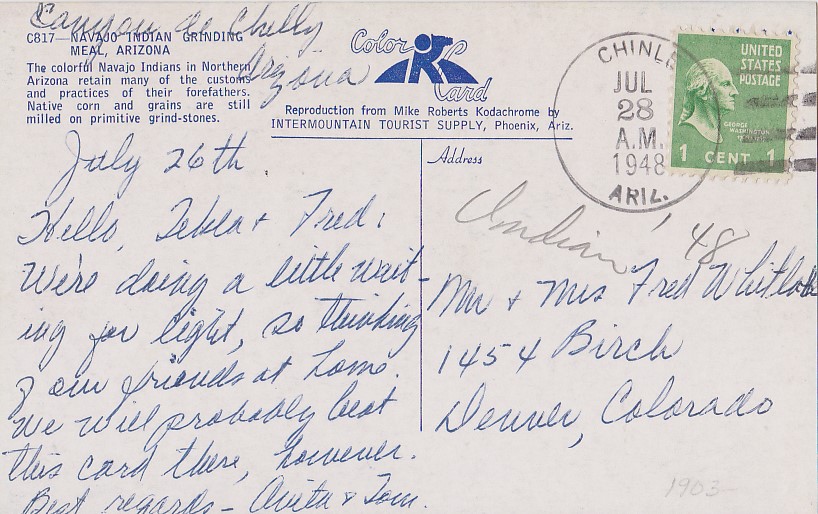 Canyon de Chelly
Arizona
C817—NAVAJO INDIAN GRINDING
MEAL, ARIZONA
The colorful Navajo Indians in Northern
Arizona retain many of the customs
and practices of their forefathers.
Native corn and grains are still
milled on primitive grind-stones.
Color
Card
Reproduction from Mike Roberts Kodachrome by
INTERMOUNTAIN TOURIST SUPPLY, Phoenix, Ariz.
CHINLE
JUL
28
A.M.
1948
ARIZ.
UNITED
STATES
POSTAGE
GEORGE
WASHINGTON
1 CENT 1
July 26th
Hello, Tekla & Fred:
We're doing a little wait-
ing for light, so thinking
of our friends at home.
We will probably beat
this card there, however.
Best regards – Anita & Tom.
Address
Indian '48
Mr & Mrs Fred Whitlock
1454 Birch
Denver, Colorado
1903-